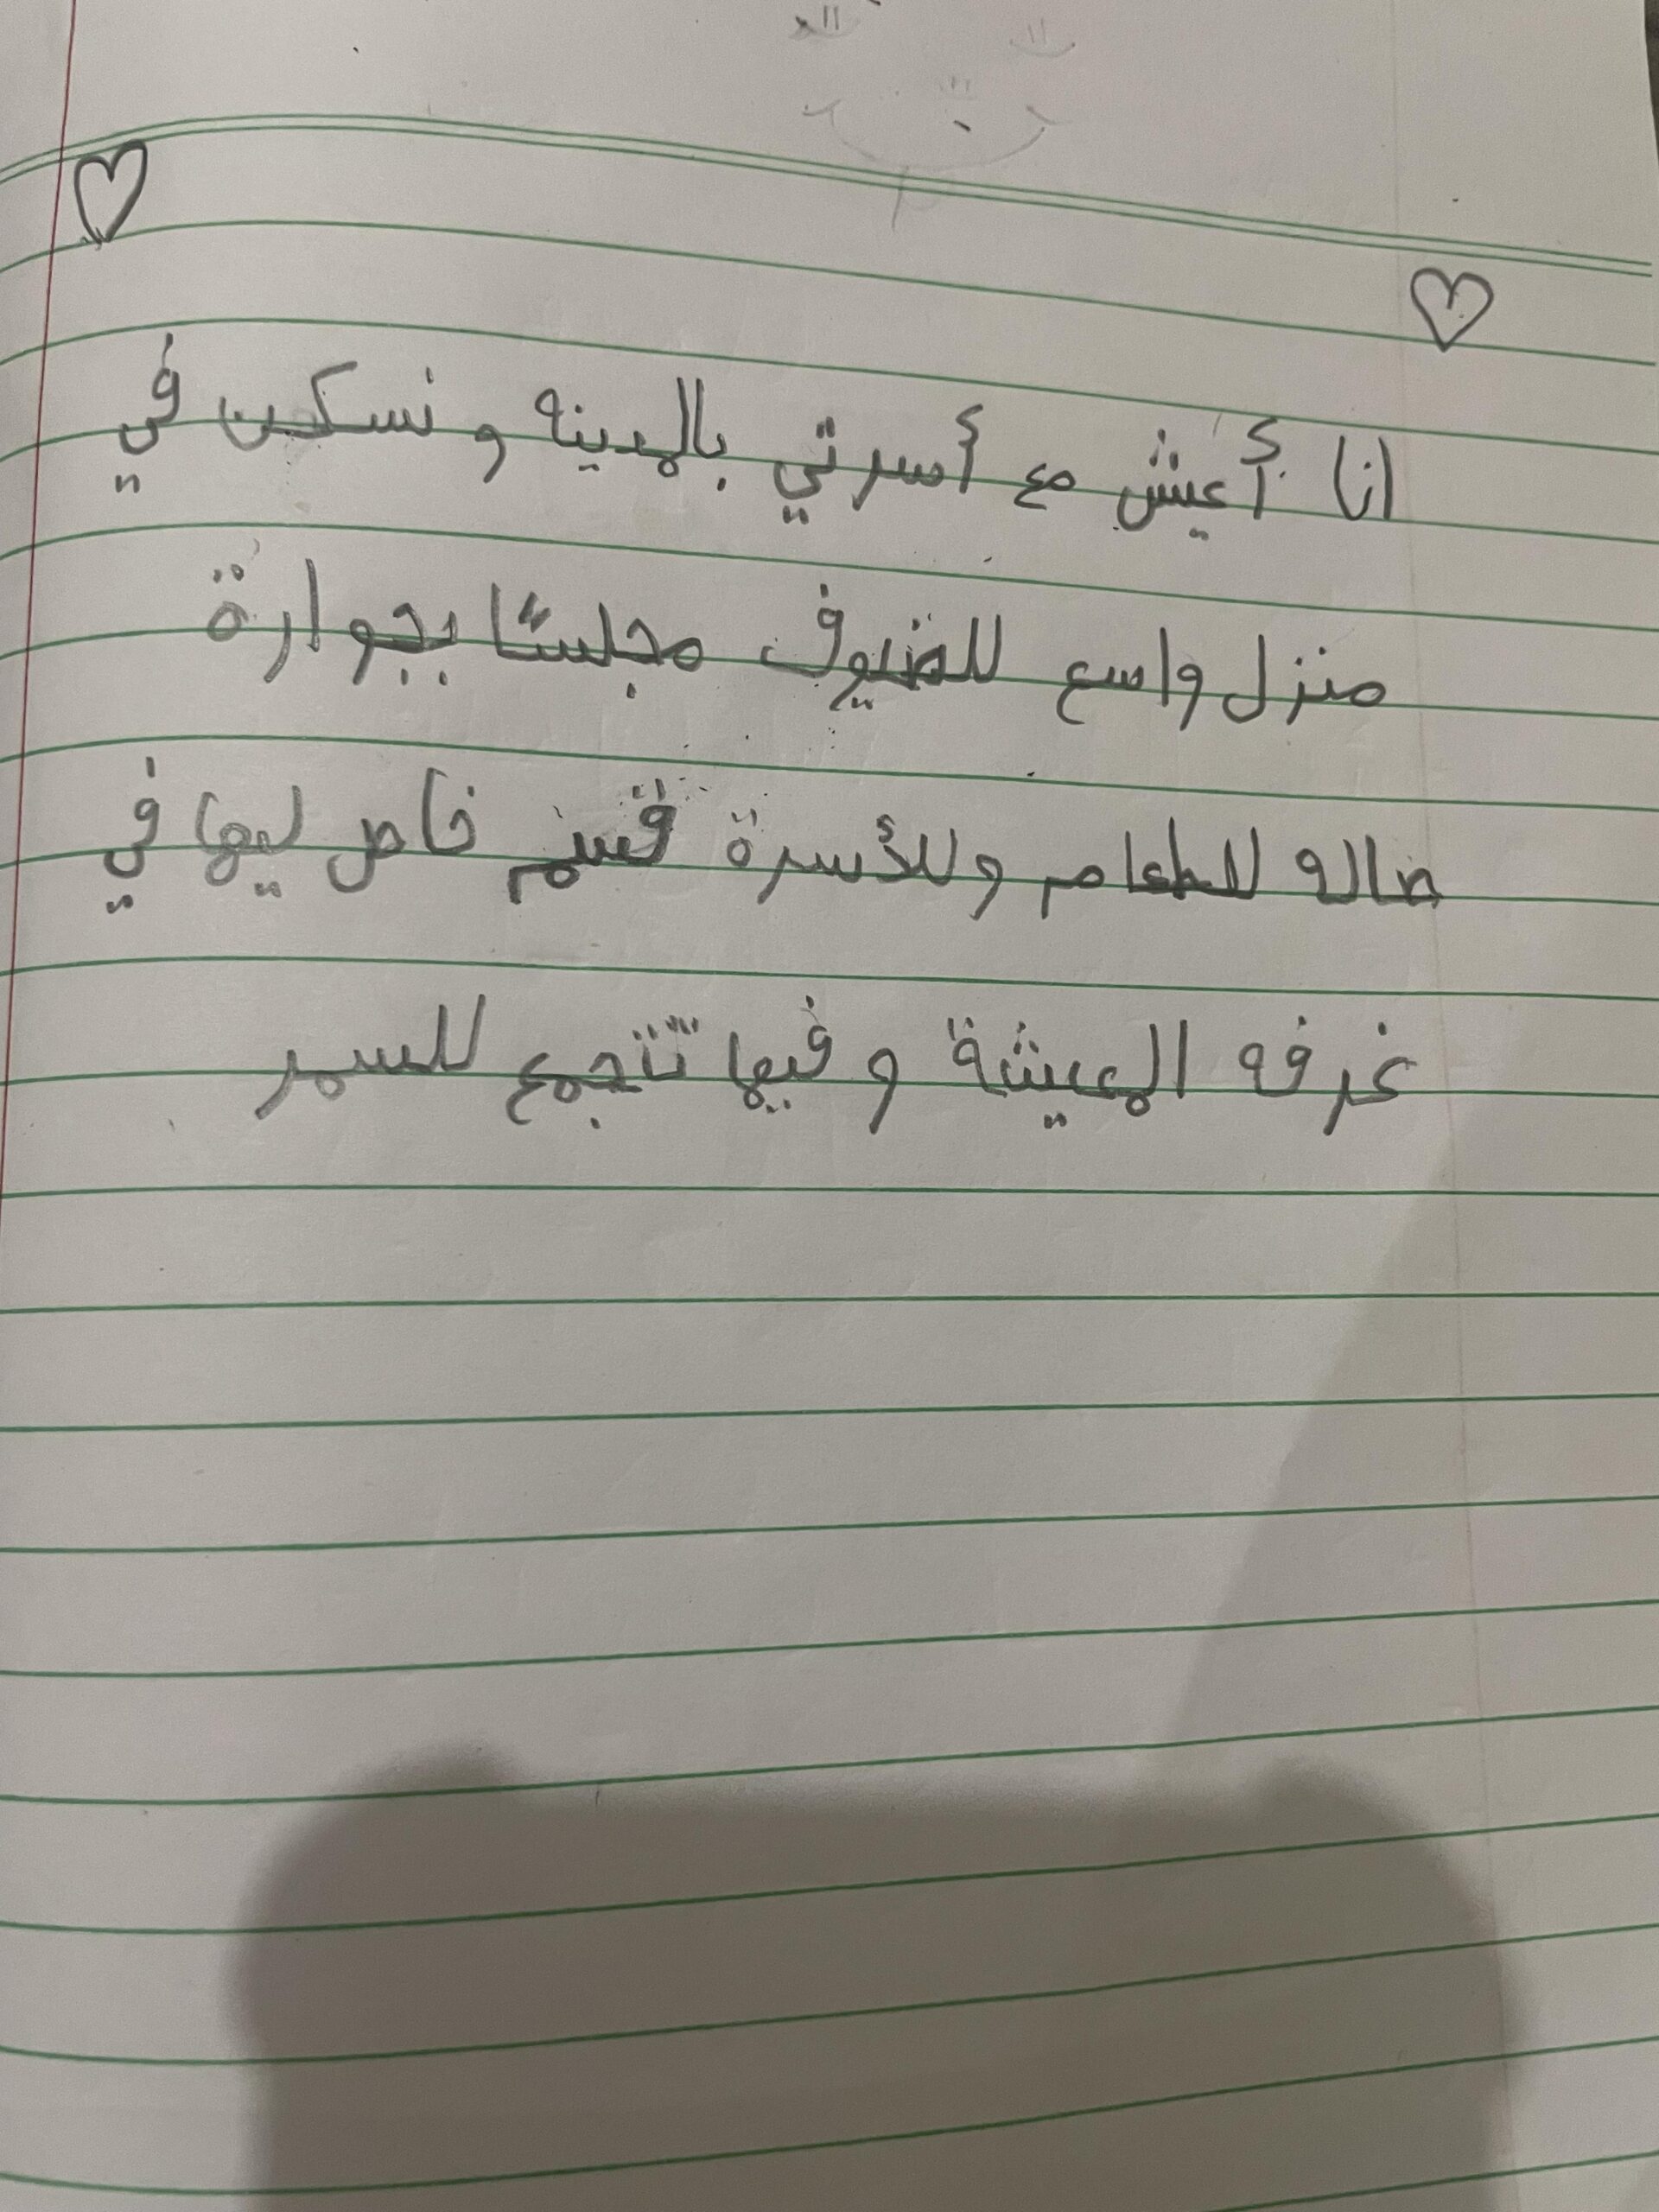 انا أعيش مع أسرتي بالمدينه و نسكن في
منزل واسع للضيوف مجلسًا بجوارة
صاله للطعام وللأسرة قسم خاص ليها في
غرفه المعيشة و فيها تتجمع للسمر